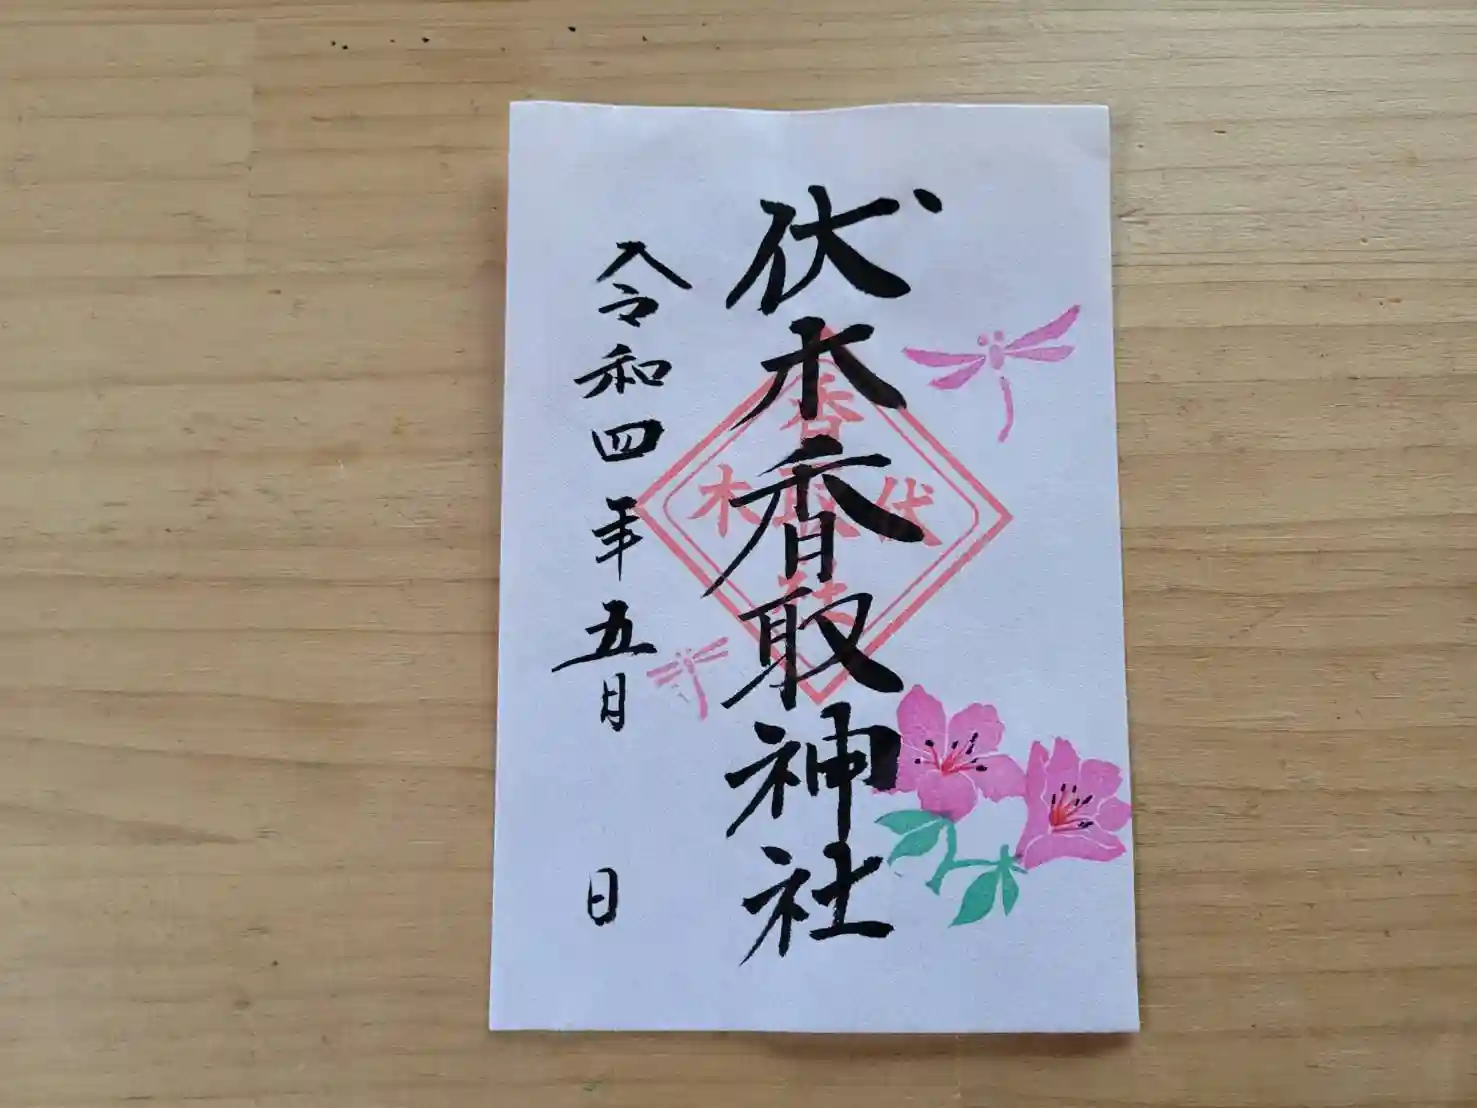 伏木香取神社
令和四年五月
日
香
伏取木
社